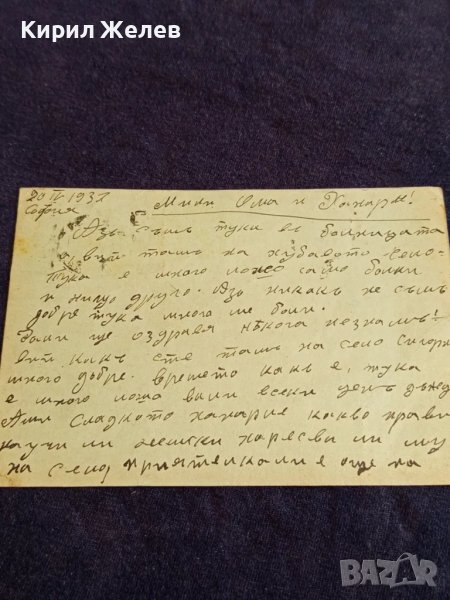 Кирил Желев
20 IV 1932
София
Мили Ома и Ханарм!
Азъ съмъ тука въ болницата
а вий тамъ на хубавото село
тука е много лошо само болки
и нищо друго. Азъ никакъ не съмъ
добре тука много ме боли.
дали ще оздравя нѣкога незнамъ!
вий какъ сте тамъ на село сигорно
много добре. времето какъ е, тука
е много лошо вали всеки день дъжд
Ами сладкото ханарче какво прави
научи ли немски харесва ли му
на село приятелка ли е още на
BAZAR